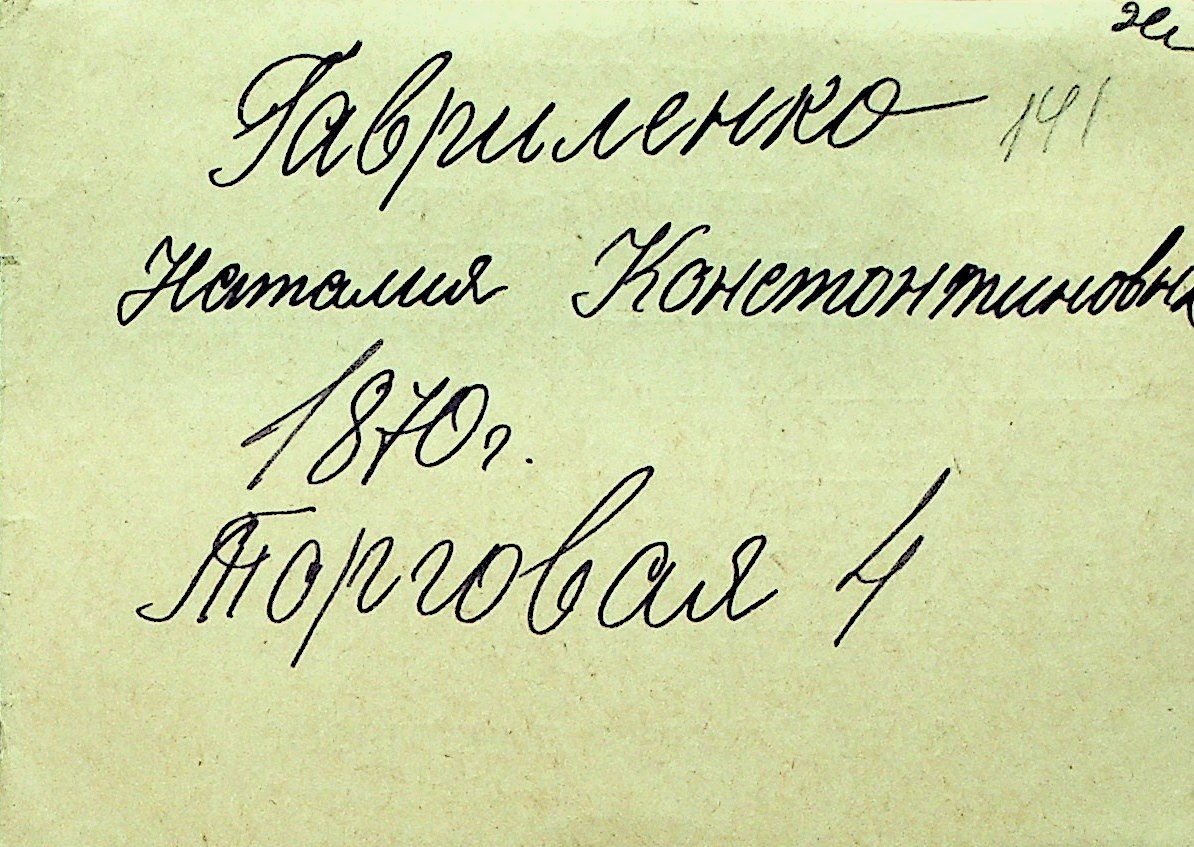 Гавриленко 141
Наталия Константиновн
1870г.
Торговая 4